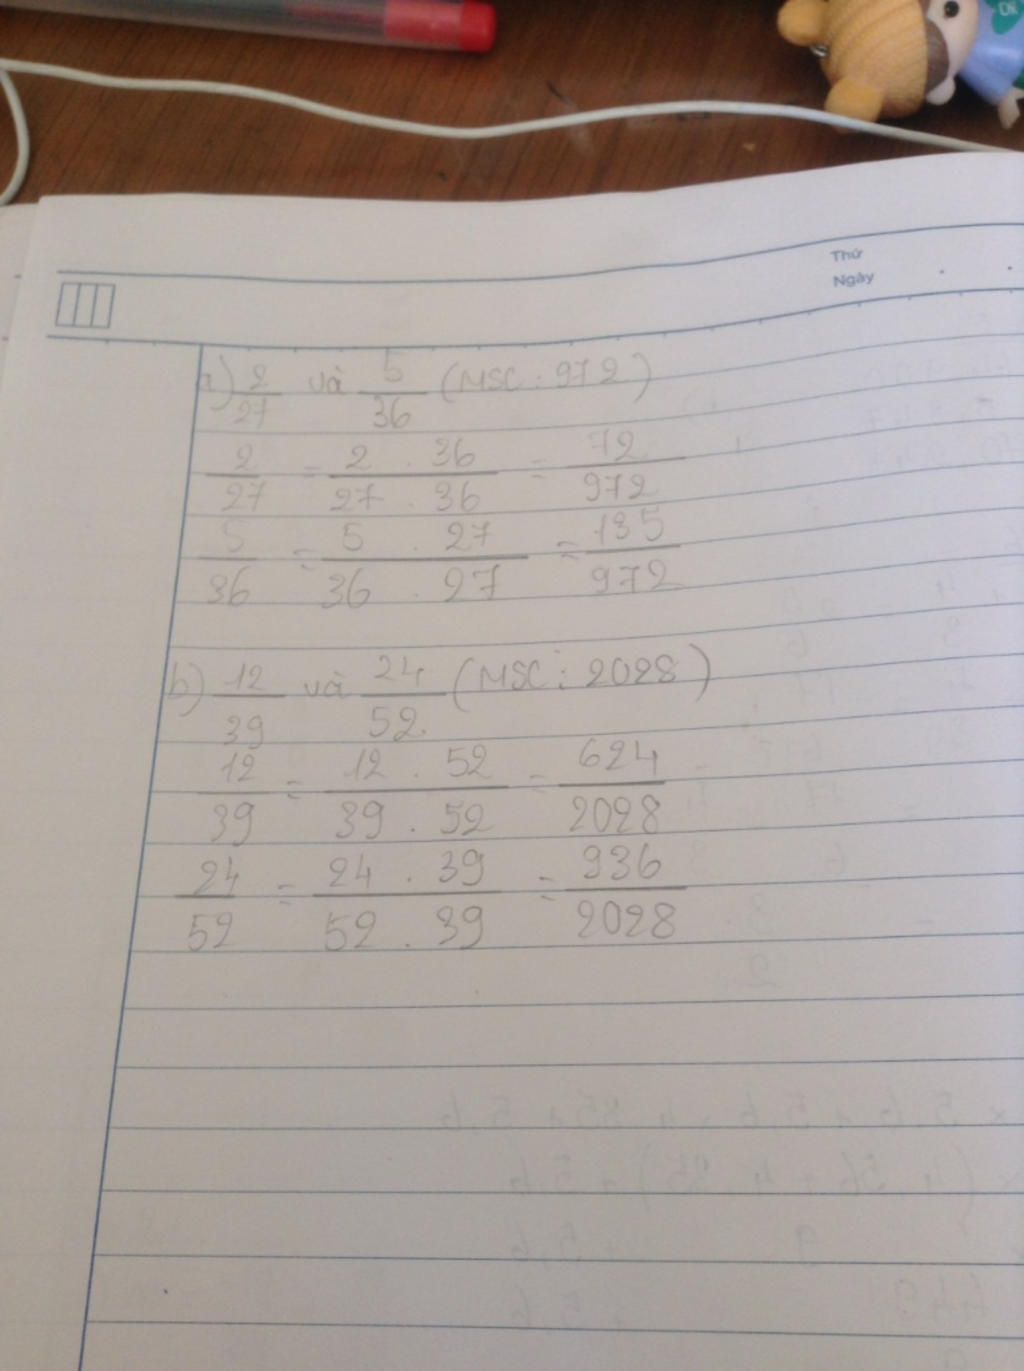 Thứ
Ngày
a) 2/27 và 5/36 (MSC : 972)
2/27 = 2 . 36/27 . 36 = 72/972
5/36 = 5 . 27/36 . 27 = 135/972
b) 12/39 và 24/52 (MSC : 2028)
12/39 = 12 . 52/39 . 52 = 624/2028
24/52 = 24 . 39/52 . 39 = 936/2028